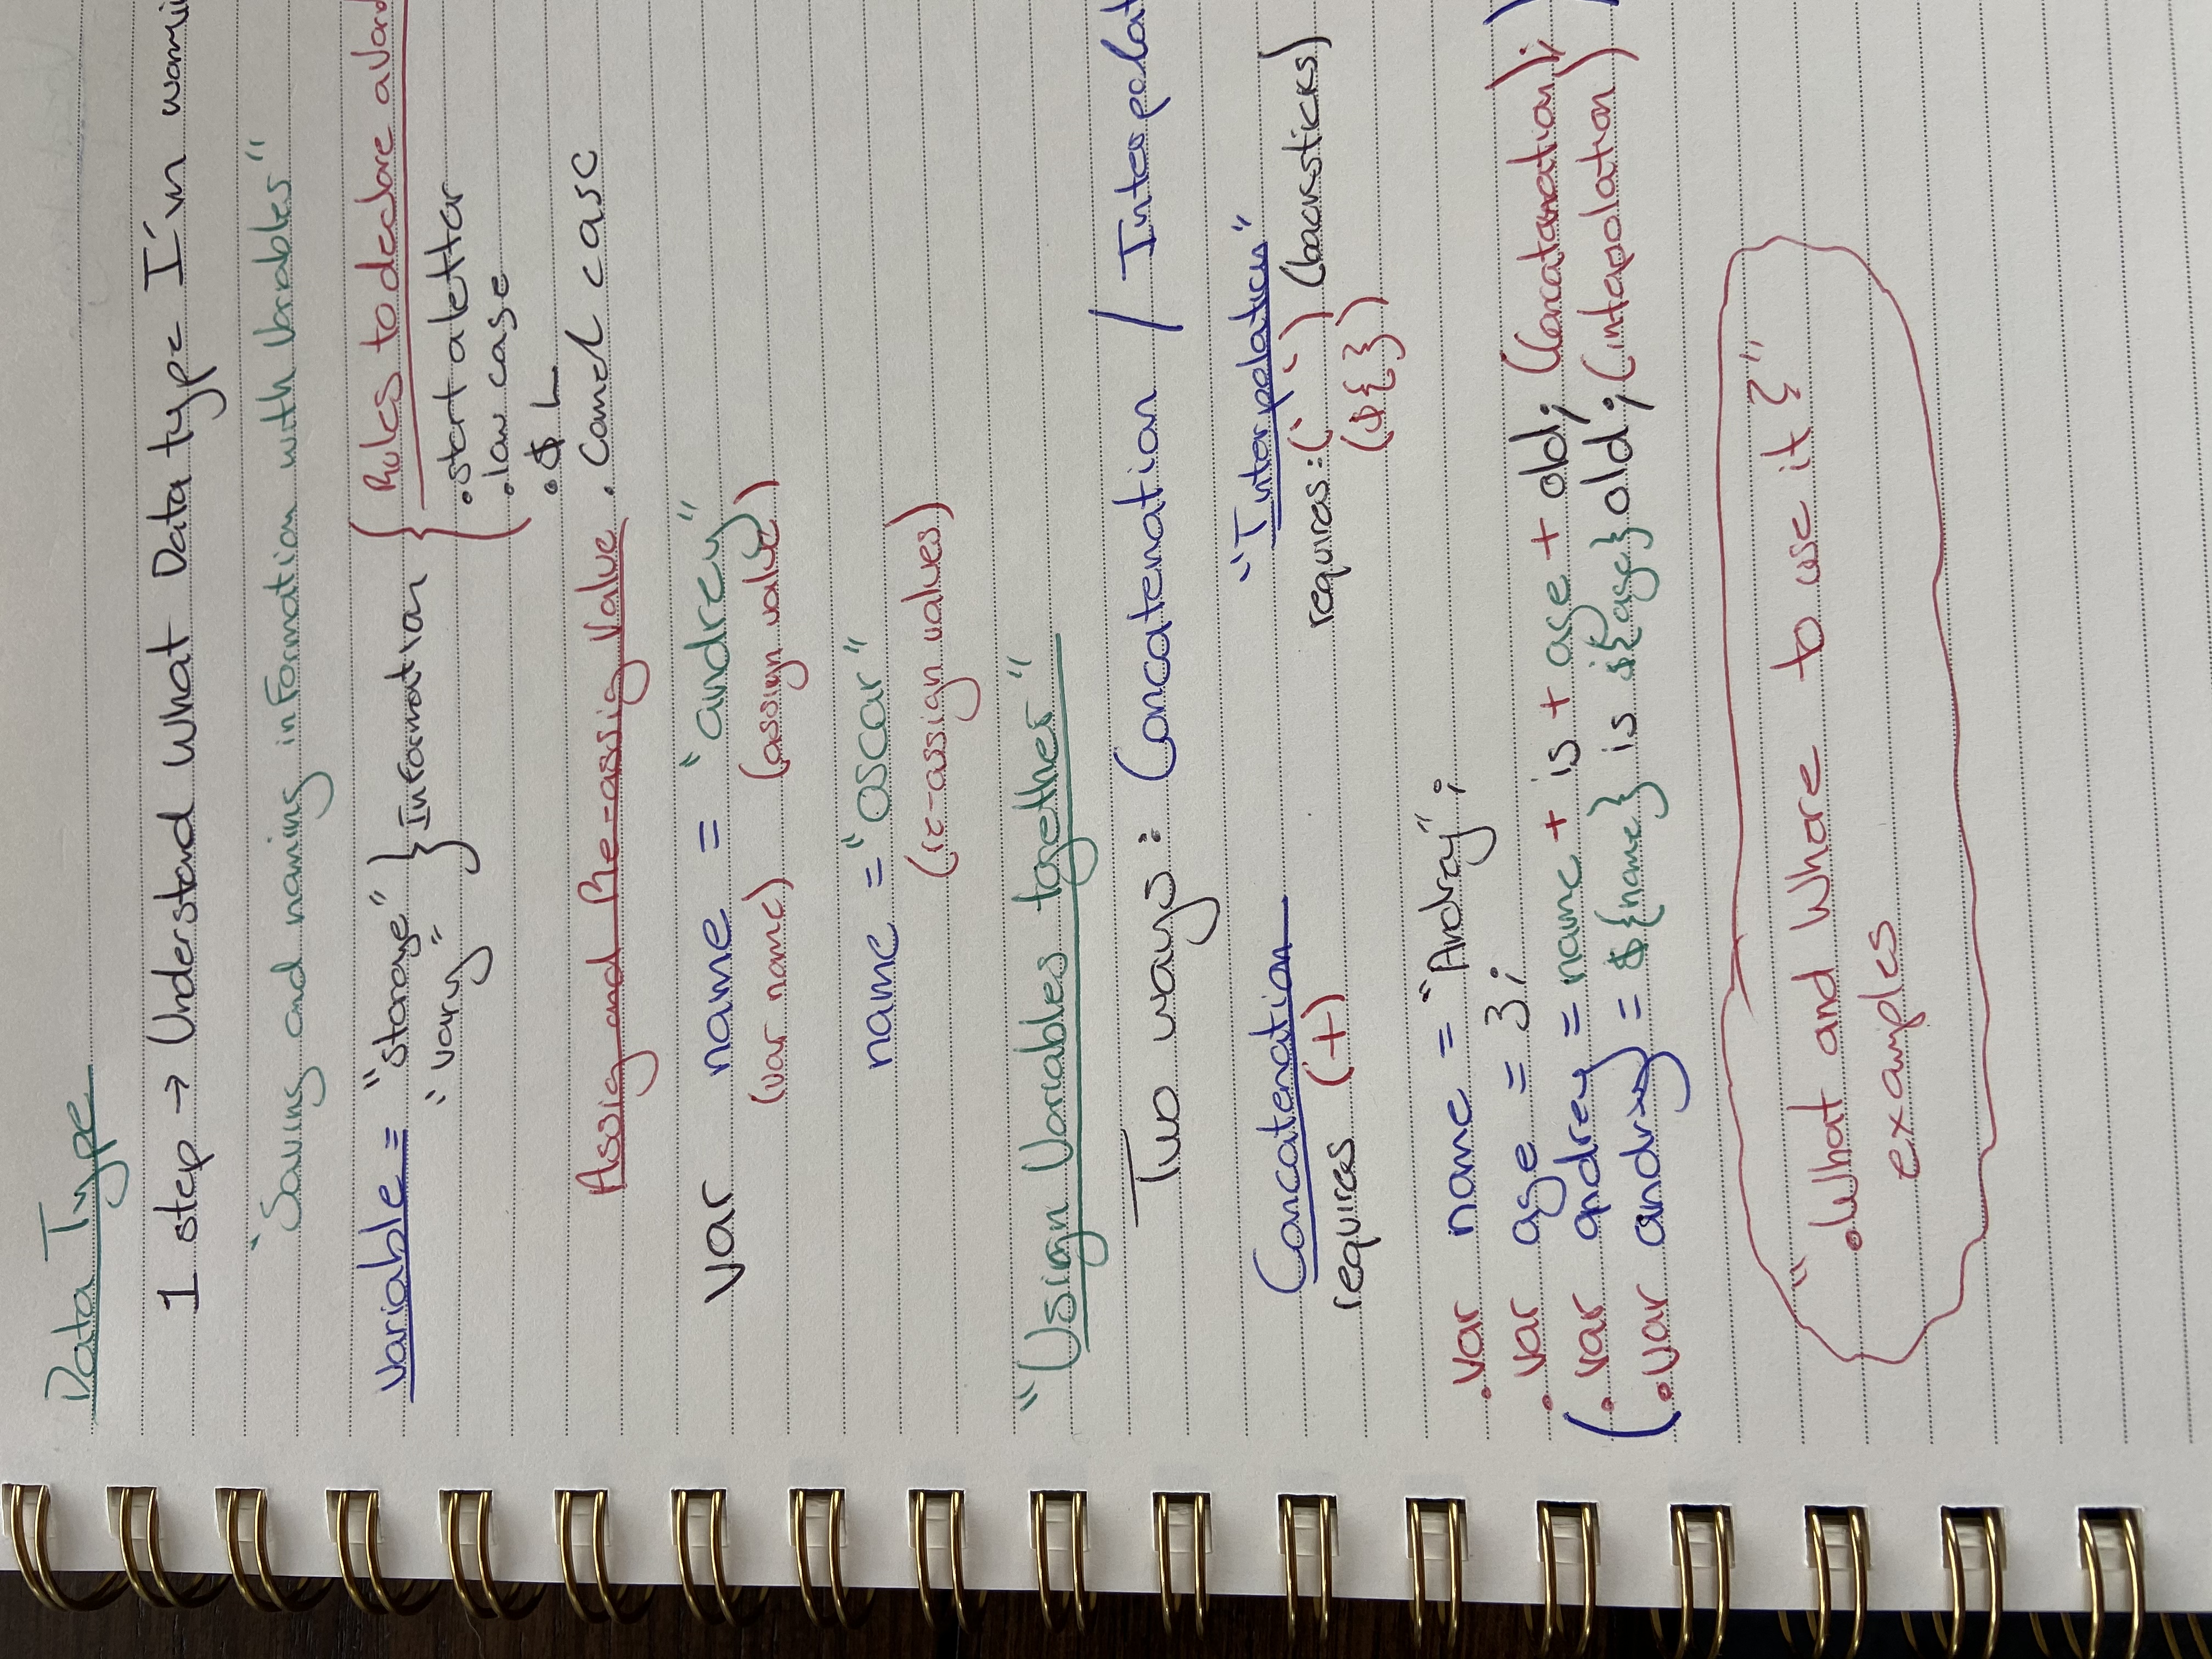 Data Type
1 step → Understand what Data type I'm
"Saving and naming information with Variables"
variable = "storage" } Information { Rules to declare a
"vary"
.start a letter
.low case
.$ L
.Camel case
Assig and Re-assig value
var name = "andrey"
(var name) (assign value)
name = "oscar"
(re-assign values)
"Using Variables together"
Two ways: Concatenation / Interpolat
Concatenation "Interpolation"
requires (+) requires: (` `) (backsticks)
(${})
.var name = "Andrey";
.var age = 3;
(.var andrey = name + is + age + old; (Concatenation); )
(.var andrey = ${name} is ${age} old; (intapolation) )
" .What and Where to use it? "
examples